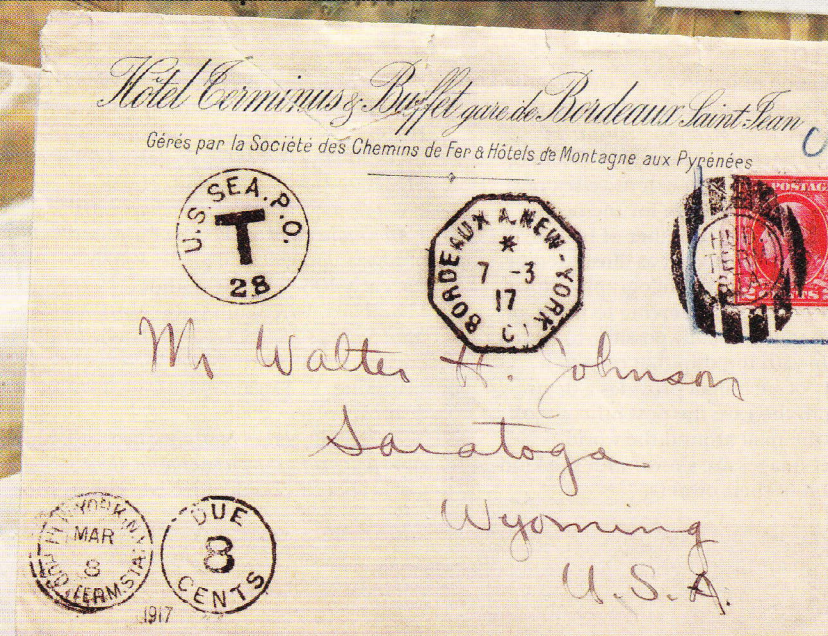 Hôtel Terminus & Buffet gare de Bordeaux Saint-Jean
Gérés par la Société des Chemins de Fer & Hôtels de Montagne aux Pyrénées
U.S. SEA. P.O.
T
28
BORDEAUX A. NEW-YORK
*
7 -3
17
POSTAGE
CENTS
HU
TER
Mr Walter H. Johnson
Saratoga
Wyoming
U.S.A.
MAR
8
TERM. STA.
1917
DUE
8
CENTS